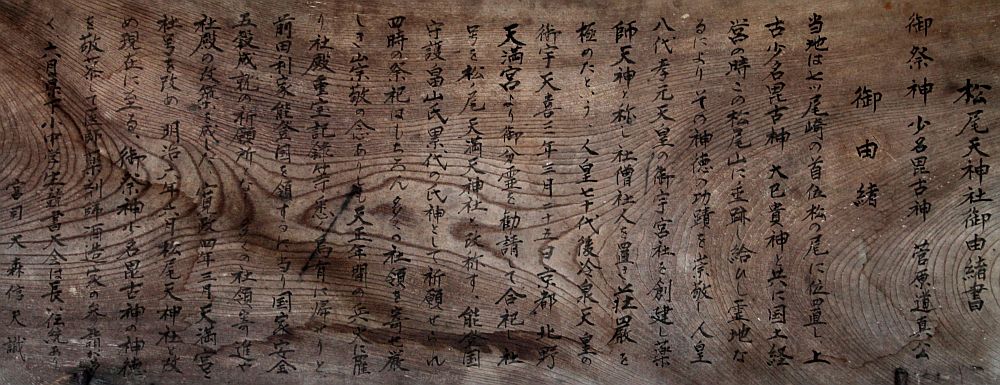 松尾天神社御由緒書
御祭神 少名毘古神 菅原道真公
御由緒
当地は七ツ尾崎の首位松の尾に位置し 上
古少名毘古神 大己貴神と共に国土経
営の時この松尾山に垂跡し給ひし霊地な
るによりその神徳の功蹟を崇敬し 人皇
八代孝元天皇の御宇宮社を創建し薬
師天神と称し社僧社人を置き荘厳を
極めたという 人皇七十代後冷泉天皇の
御宇天喜二年三月十五日京都北野
天満宮より御分霊を勧請して合祀し社
号を松ノ尾天満天神社と改称す、能登国
守護畠山氏累代の氏神として祈願せられ
四時の祭祀はもちろん多くの社領を寄せ厳
しき崇敬の命ありしも天正年間の兵火に罹
り社殿重宝記録等悉く烏有に帰せりと
前田利家能登国を領するに当り国家安全
五穀成就の祈願所となし多くの社領寄進や
社殿の改築を成した 明治四年三月天満宮を
社号を改め 明治六年 松尾天神社と改
め現在に至る、御祭神少名毘古神の神徳
を敬慕して医師薬剤師酒造家の参詣が
く 六月 小中学生 書大会は長い伝統あり
宮司 大森信天 誠